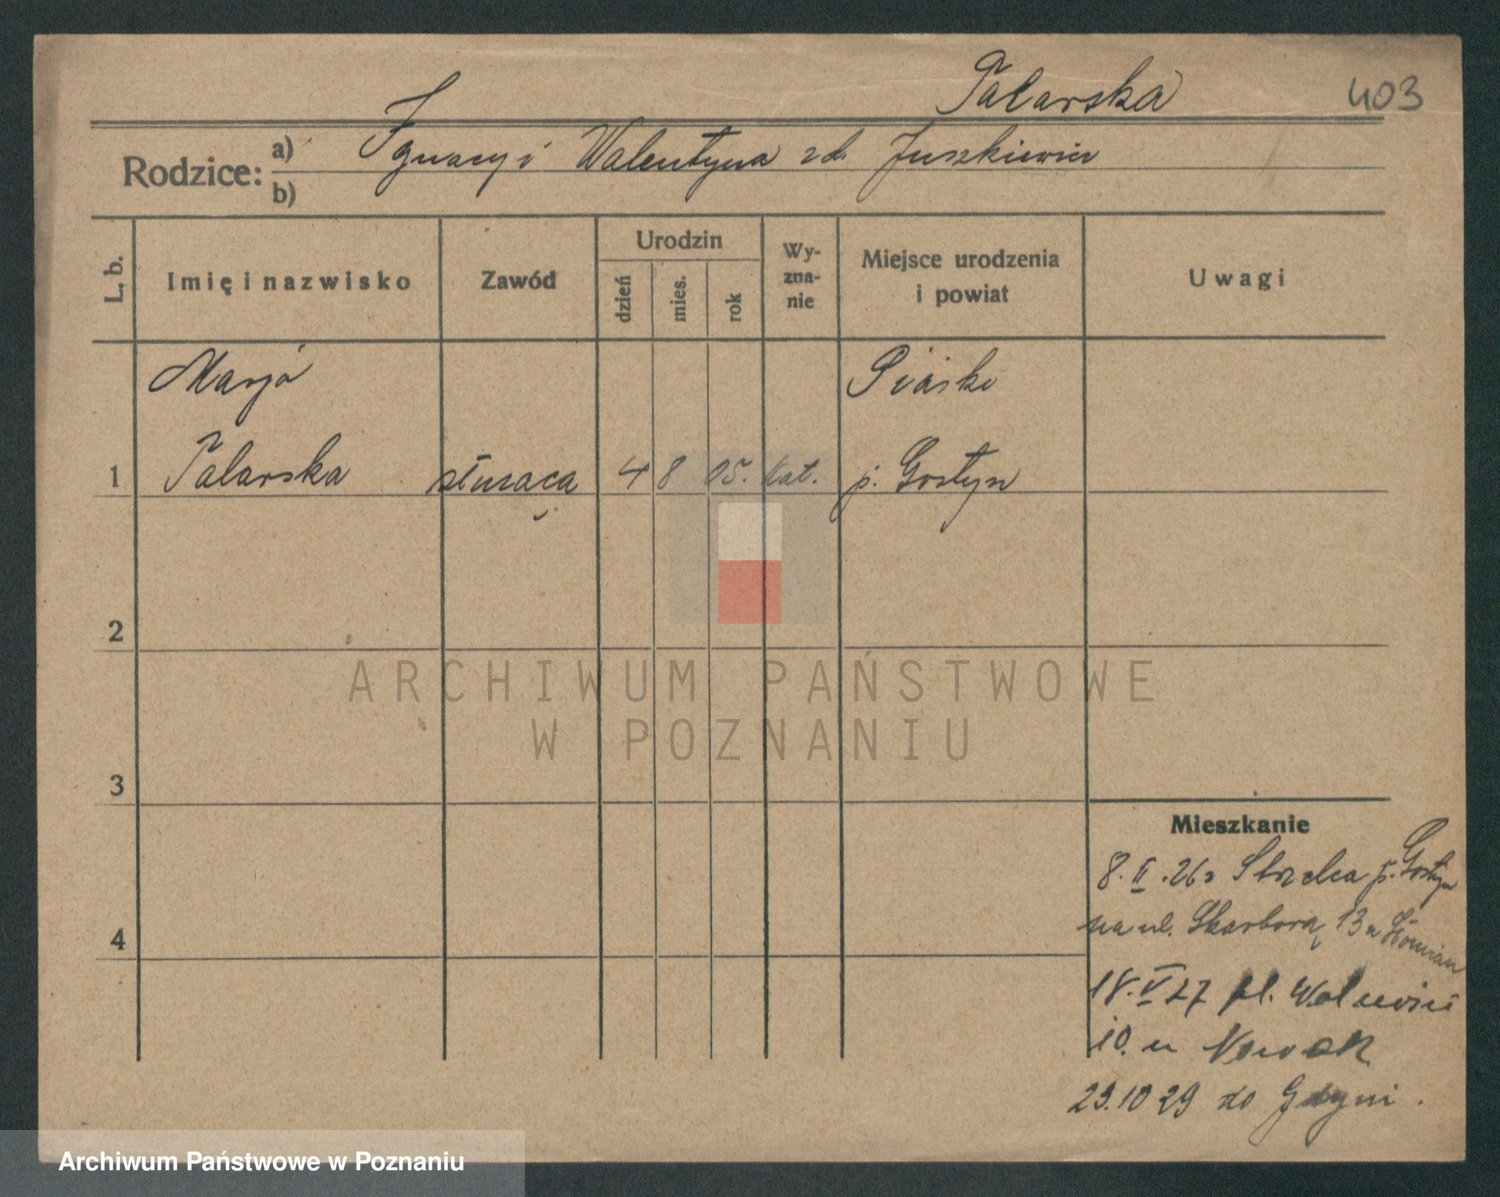 Palarska 403
Rodzice: a) Ignacy i Walentyna zd. Juszkiewicz
b)
L. b.
Imię i nazwisko
Zawód
Urodzin
dzień
mies.
rok
Wy-
zna-
nie
Miejsce urodzenia
i powiat
Uwagi
Marja Piaski
1 Palarska służąca 4 8 05. kat. p. Gostyn
2
3
4
Mieszkanie
8.II.26 z Strzelca p. Gostyn
na ul. Skarbową 13 u
18.V 27 pl.
10. u Nowak
23.10 29 do Gdyni.
ARCHIWUM PAŃSTWOWE
W POZNANIU
Archiwum Państwowe w Poznaniu